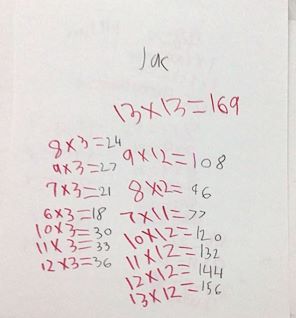 Jac
13×13=169
8×3=24
9×3=27
7×3=21
6×3=18
10×3=30
11×3=33
12×3=36
9×12=108
8×2=96
7×11=77
10×12=120
11×12=132
12×12=144
13×12=156